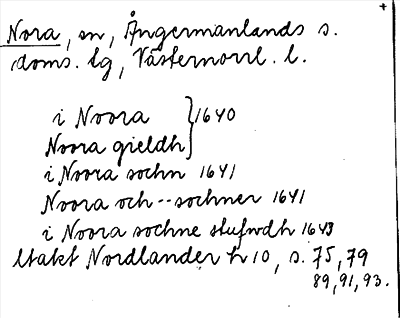 Nora, sn, Ångermanlands s.
doms. lg, Västernorrl. l.
i Noora } 1640
Noora gieldh
i Noora sochn 1641
Noora och -- sochner 1641
i Noora sochne stufwdh 1643
Utakt Nordlander h 10, s. 75, 79
89, 91, 93.